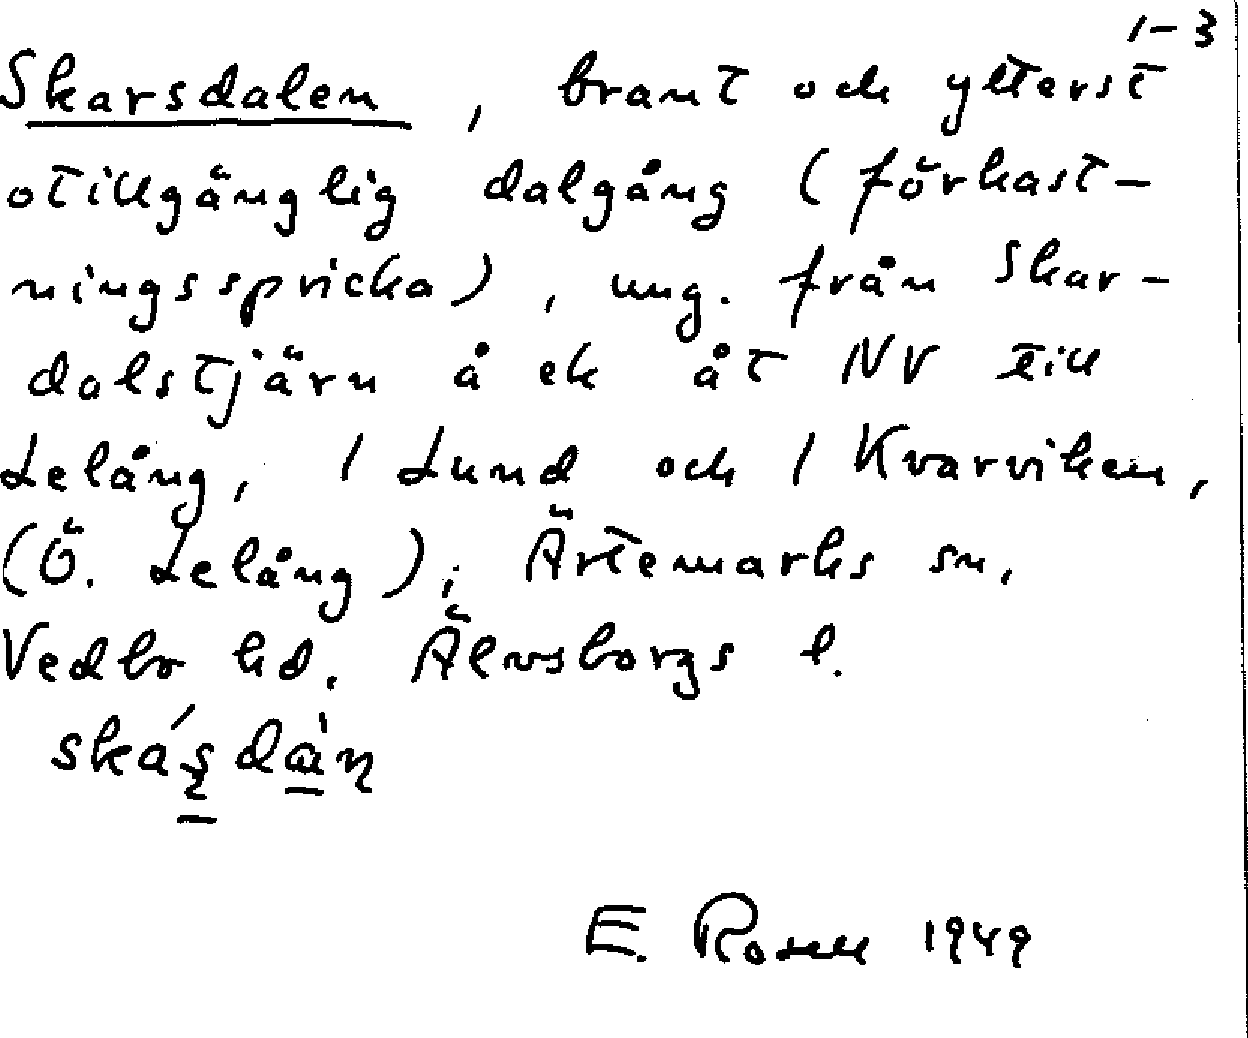 1–3
Skarsdalen, brant och ytterst
otillgänglig dalgång (förkast-
ningsspricka), ung. från Skar-
dalstjärn å ek åt NV till
Lelång, / Lund och / Kvarviken,
(Ö. Lelång); Ärtemarks sn,
Vedbo hd. Älvsborgs l.
E. Rosell 1949